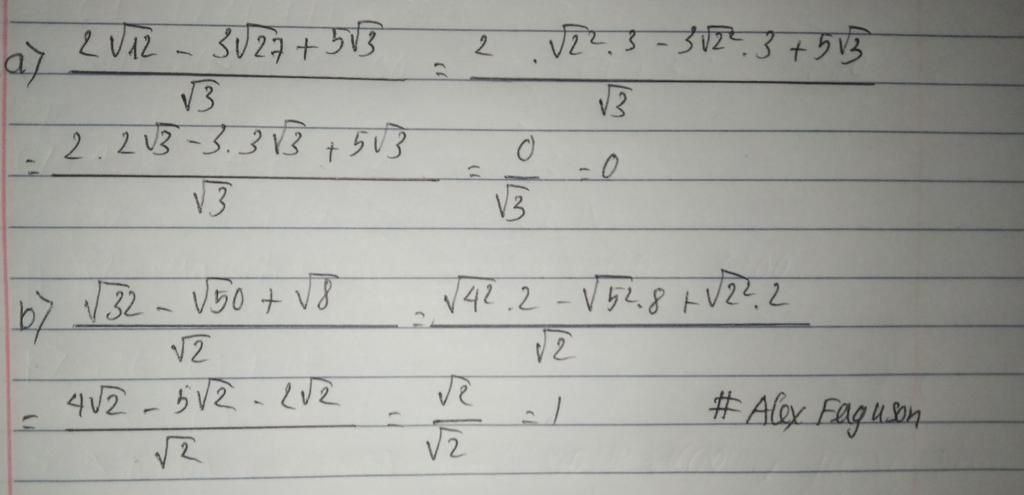 a) (2√12 − 3√27 + 5√3)/√3 = (2 . √2².3 − 3√2².3 + 5√3)/√3
= (2 . 2√3 − 3.3√3 + 5√3)/√3 = 0/√3 = 0
b) (√32 − √50 + √8)/√2 = (√4².2 − √5².8 + √2².2)/√2
= (4√2 − 5√2 - 2√2)/√2 = √2/√2 = 1 # Alex Faguson